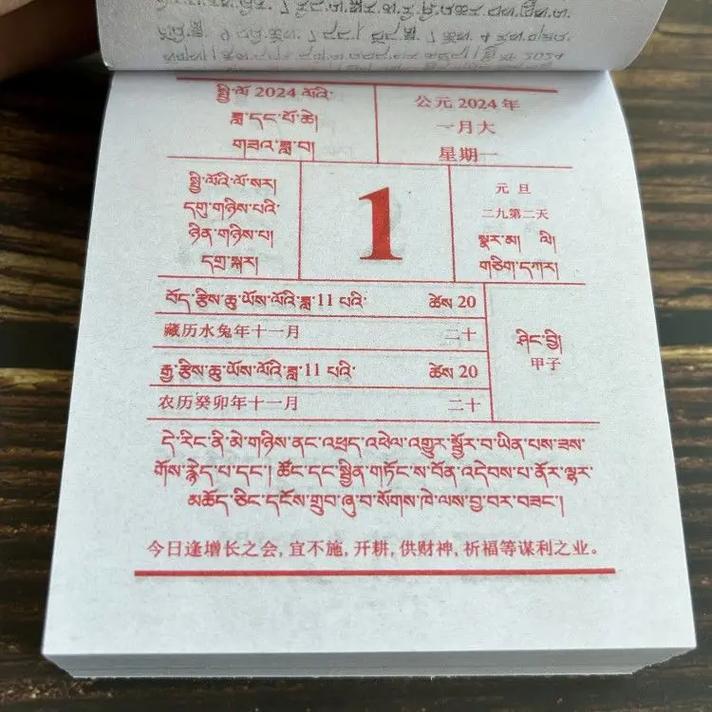 སྤྱི་ལོ་ 2024 ལོའི་
ཟླ་དང་པོ་ཆེ།
གཟའ་ཟླ་བ།
公元 2024 年
一月大
星期一
སྤྱི་ལོའི་ལོ་སར།
དགུ་གཉིས་པའི་
ཉིན་གཉིས་པ།
དགྲ་སྐར།
1
元 旦
二九第二天
སྣར་མ། ལི།
གཅིག་དཀར།
བོད་རྩིས་ཆུ་ཡོས་ལོའི་ཟླ་11 པའི་ ཚེས 20
藏历水兔年十一月 二十
རྒྱ་རྩིས་ཆུ་ཡོས་ལོའི་ཟླ་11 པའི་ ཚེས 20
农历癸卯年十一月 二十
ཤིང་བྱི།
甲子
དེ་རིང་ནི་མེ་གཉིས་ནང་འཕྲད་འཕེལ་འགྱུར་སྦྱོར་བ་ཡིན་པས་ཟས་
གོས་རྙེད་པ་དང་། ཚོང་དང་སྦྱིན་གཏོང་ས་བོན་འདེབས་པ་ནོར་ལྷར་
མཆོད་ཅིང་དངོས་གྲུབ་ཞུ་བ་སོགས་ཁེ་ལས་བྱ་བར་བཟང་།
今日逢增长之会, 宜不施, 开耕, 供财神, 祈福等谋利之业。